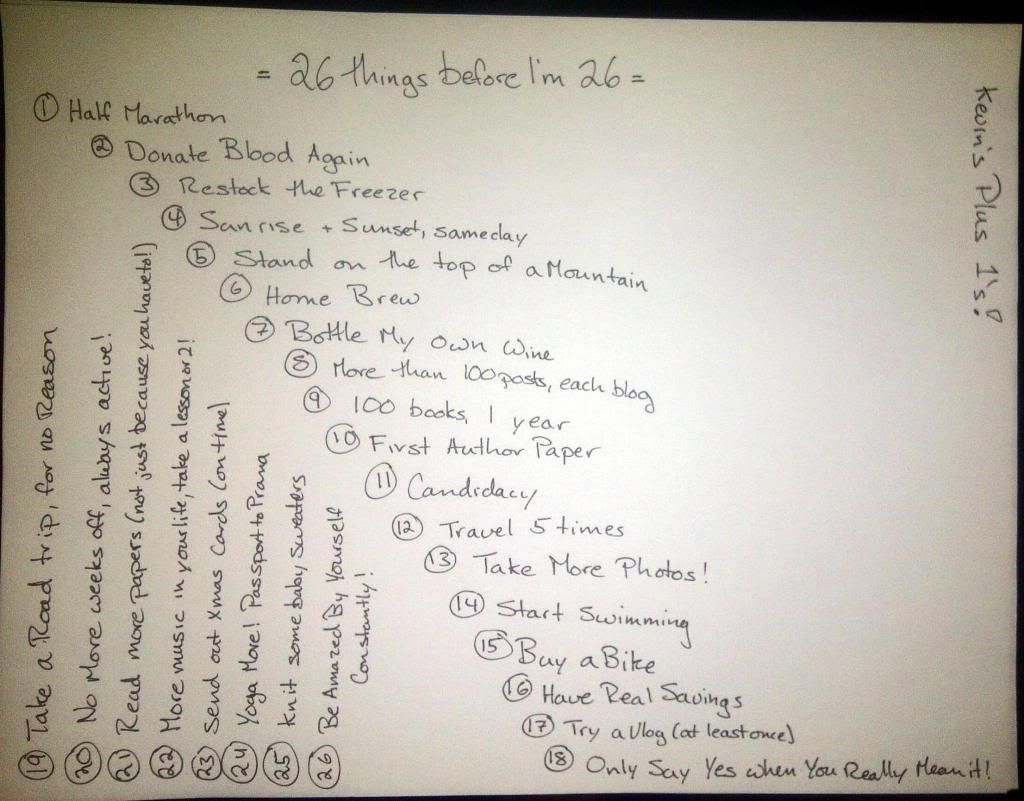 = 26 things before I'm 26 =
① Half Marathon
② Donate Blood Again
③ Restock the Freezer
④ Sunrise + Sunset, sameday
⑤ Stand on the top of a Mountain
⑥ Home Brew
⑦ Bottle My Own Wine
⑧ More than 100 posts, each blog
⑨ 100 books, 1 year
⑩ First Author Paper
⑪ Candidacy
⑫ Travel 5 times
⑬ Take More Photos!
⑭ Start Swimming
⑮ Buy a Bike
⑯ Have Real Savings
⑰ Try a Vlog (at least once)
⑱ Only Say Yes when You Really Mean it!
⑲ Take a Road trip, for no Reason
⑳ No More weeks off, always active!
㉑ Read more papers (not just because you have to!)
㉒ More music in your life, take a lesson or 2!
㉓ Send out Xmas Cards (on time)
㉔ Yoga More! Passport to Prana
㉕ Knit some baby Sweaters
㉖ Be Amazed By Yourself
Constantly!
Kevin's Plus 1's!